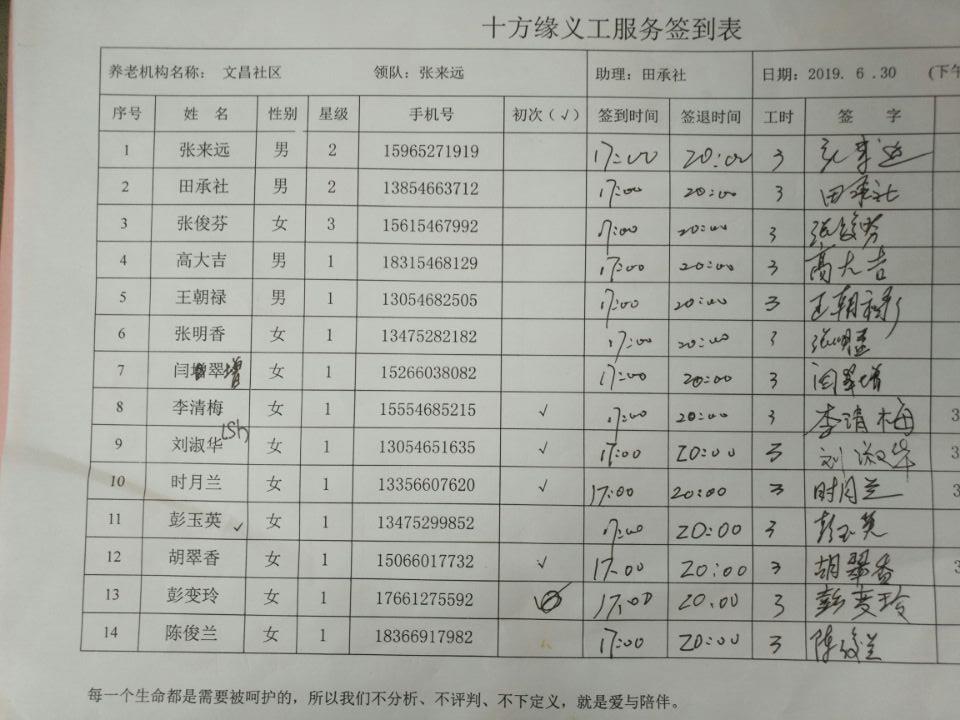 十方缘义工服务签到表
养老机构名称： 文昌社区 领队：张来远 助理：田承社 日期：2019. 6 .30 (下午
序号 姓 名 性别 星级 手机号 初次（√） 签到时间 签退时间 工时 签 字
1 张来远 男 2 15965271919 17:00 20:00 3 张来远
2 田承社 男 2 13854663712 17:00 20:00 3 田承社
3 张俊芬 女 3 15615467992 17:00 20:00 3 张俊芬
4 高大吉 男 1 18315468129 17:00 20:00 3 高大吉
5 王朝禄 男 1 13054682505 17:00 20:00 3 王朝禄
6 张明香 女 1 13475282182 17:00 20:00 3 张明香
7 闫翠增 女 1 15266038082 17:00 20:00 3 闫翠增
8 李清梅 女 1 15554685215 √ 17:00 20:00 3 李清梅 3
9 刘淑华 女 1 13054651635 √ 17:00 20:00 3 刘淑华 3
10 时月兰 女 1 13356607620 √ 17:00 20:00 3 时月兰 3
11 彭玉英 √ 女 1 13475299852 17:00 20:00 3 彭玉英
12 胡翠香 女 1 15066017732 √ 17:00 20:00 3 胡翠香 3
13 彭变玲 女 1 17661275592 17:00 20:00 3 彭变玲
14 陈俊兰 女 1 18366917982 17:00 20:00 3 陈俊兰
每一个生命都是需要被呵护的，所以我们不分析、不评判、不下定义，就是爱与陪伴。